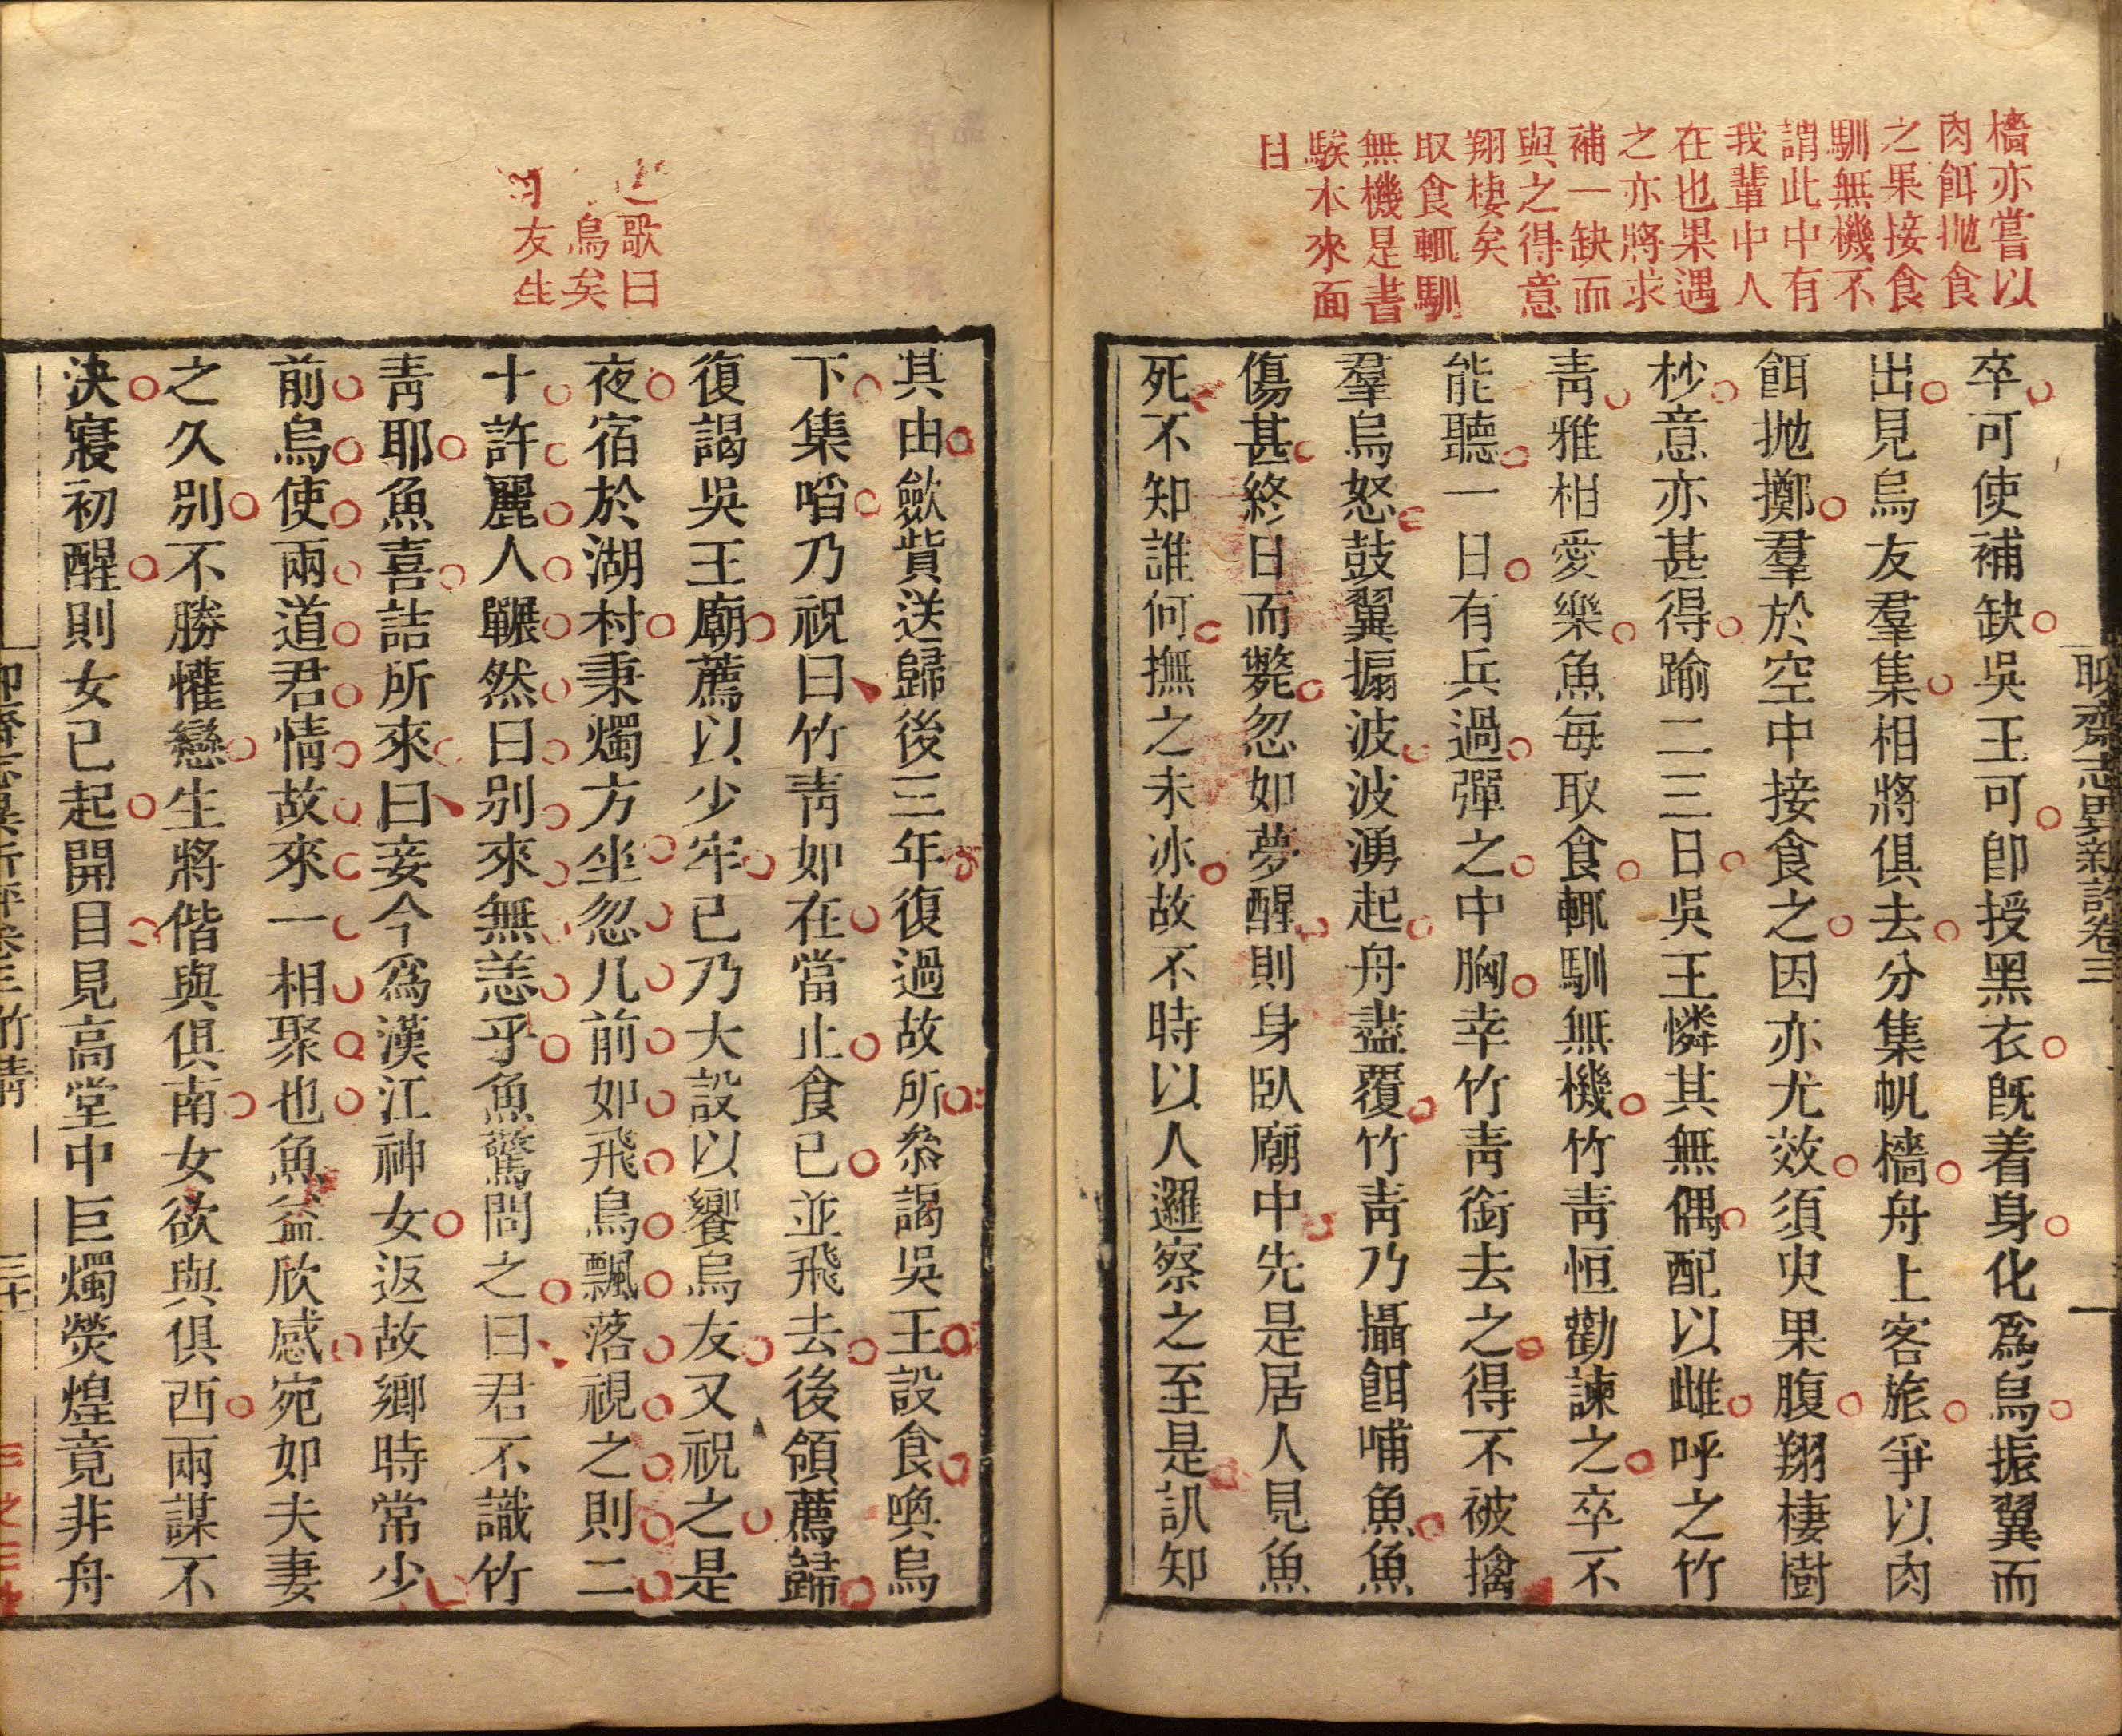 檣亦嘗以
肉餌拋食
之果接食
馴無機不
謂此中有
我輩中人
在也果遇
之亦將求
補一缺而
與之得意
翔棲矣
取食輒馴
無機是書
騃本來面
目
聊齋志異新評卷三
卒可使補缺吳王可卽授黑衣旣着身化爲烏振翼而
出見烏友羣集相將俱去分集帆檣舟上客旅爭以肉
餌拋擲羣於空中接食之因亦尤效須臾果腹翔棲樹
杪意亦甚得踰二三日吳王憐其無偶配以雌呼之竹
靑雅相愛樂魚每取食輒馴無機竹靑恒勸諫之卒不
能聽一日有兵過彈之中胸幸竹靑銜去之得不被擒
羣烏怒鼓翼搧波波湧起舟盡覆竹靑乃攝餌哺魚魚
傷甚終日而斃忽如夢醒則身臥廟中先是居人見魚
死不知誰何撫之未冰故不時以人邏察之至是訊知
歌曰
烏矣
友生
其由歛貲送歸後三年復過故所叅謁吳王設食喚烏
下集啗乃祝曰竹靑如在當止食已並飛去後領薦歸
復謁吳王廟薦以少牢已乃大設以饗烏友又祝之是
夜宿於湖村秉燭方坐忽几前如飛鳥飄落視之則二
十許麗人囅然曰别來無恙乎魚驚問之曰君不識竹
靑耶魚喜詰所來曰妾今爲漢江神女返故鄉時常少
前烏使兩道君情故來一相聚也魚益欣感宛如夫妻
之久別不勝懽戀生將偕與俱南女欲與俱西兩謀不
決寢初醒則女已起開目見高堂中巨燭熒煌竟非舟
聊齋志異新評卷三 竹靑 三十